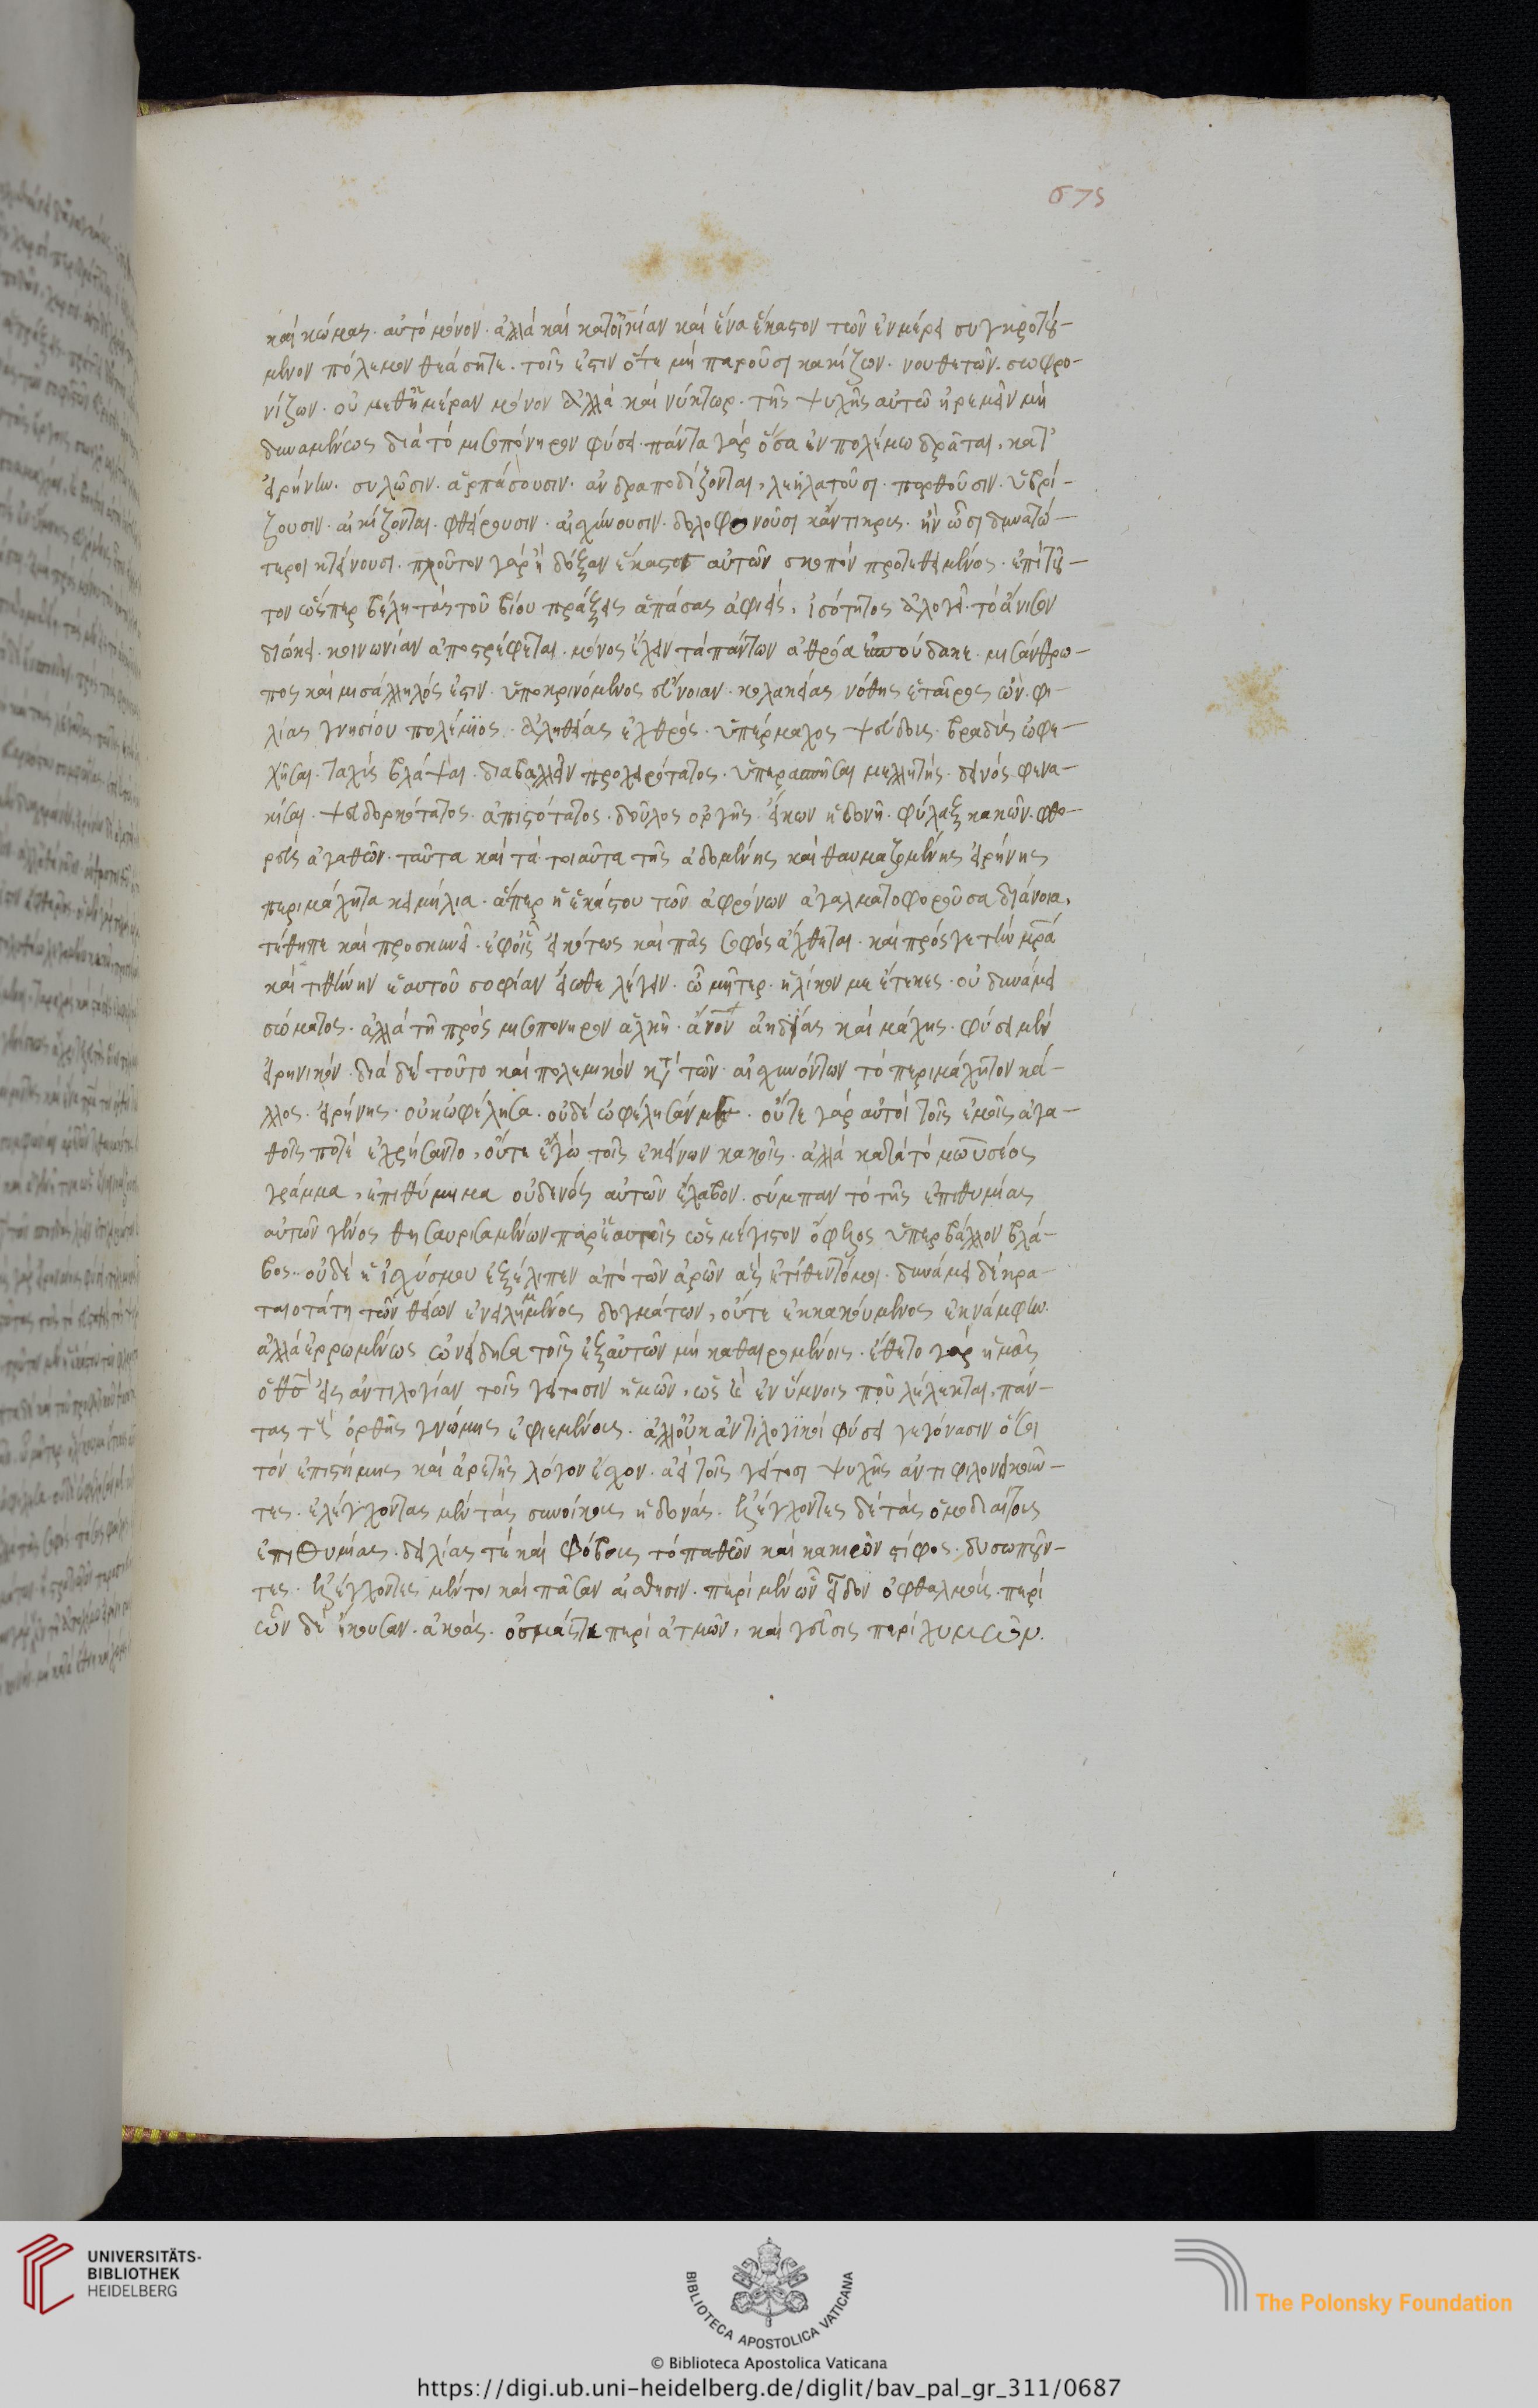 675
καὶ κώμας. αὐτὸ μόνον. ἀλλὰ καὶ κατοικίαν καὶ ἕνα ἕκαστον τῶν ἐν μέρει συγκροτού-
μενον πόλεμον θεάσητε. τοῖς ἐστιν ὅτε μὴ παροῦσι κακίζων. νουθετῶν. σωφρο-
νίζων. οὐ μεθημέραν μόνον ἀλλὰ καὶ νύκτωρ. τῆς ψυχῆς αὐτῶ ἠρεμεῖν μὴ
δυναμένης διὰ τὸ μισοπόνηρον φύσει. πάντα γὰρ ὅσα ἐν πολέμω δρᾶται, κατ'
εἰρήνην. συλῶσιν. ἁρπάσουσιν. ἀνδραποδίζονται, λεηλατοῦσι. πορθοῦσιν. ὑβρί-
ζουσιν. αἰκίζονται. φθείρουσιν. αἰσχύνουσιν. δολοφονοῦσι κἄντικρυς. ἢν ὦσι δυνατώ-
τεροι κτείνουσι. πλοῦτον γὰρ ἢ δόξαν ἕκαστος αὐτῶν σκοπὸν προτεθειμένος. ἐπὶ τοῦ-
τον ὥσπερ βέλη τὰς τοῦ βίου πράξεις ἁπάσας ἀφιεὶς, ἰσότητος ἀλογεῖ. τὸ ἄνισον
διώκει. κοινωνίαν ἀποστρέφεται. μόνος ἔχειν τὰ πάντων ἀθρόα ἐσπούδακε. μισάνθρω-
πος καὶ μισάλληλός ἐστιν. ὑποκρινόμενος εὔνοιαν. κολακείας νόθης ἑταῖρος ὤν. φι-
λίας γνησίου πολέμιος. ἀληθείας ἐχθρὸς. ὑπέρμαχος ψεύδους. βραδὺς ὠφε-
λῆσαι. ταχὺς βλάψαι. διαβαλλεῖν προχειρότατος. ὑπερασπῆσαι μελλητής. δεινὸς φενα-
κίσαι. ψευδορκότατος. ἀπιστότατος. δοῦλος ὀργῆς. εἴκων ἡδονῆ. φύλαξ κακῶν. φθο-
ρεὺς ἀγαθῶν. ταῦτα καὶ τὰ τοιαῦτα τῆς ἀδομένης καὶ θαυμαζομένης εἰρήνης
περιμάχητα κειμήλια. ἅπερ ἡ ἑκάστου τῶν ἀφρόνων ἀγαλματοφοροῦσα διάνοια,
τέθηπε καὶ προσκυνεῖ. ἐφ' οἷς εἰκότως καὶ πᾶς σοφὸς ἄχθεται. καὶ πρός γε τὴν μρ̅ά
καὶ τιθήνην ἑαυτοῦ σοφίαν εἴωθε λέγειν. ὦ μῆτερ. ἡλίκον με ἔτεκες. οὐ δυνάμει
σώματος. ἀλλὰ τῆ πρὸς μισοπονηρον ἀλκῆ. ἄνον ἀηδίας καὶ μάχης. φύσει μὲν
εἰρηνικόν. διὰ δὲ τοῦτο καὶ πολεμικὸν κατὰ τῶν αἰσχυνόντων τὸ περιμάχητον κά-
λλος. εἰρήνης. οὐκ ὠφέλησα. οὐδὲ ὠφέλησάν με. οὔτε γὰρ αὐτοὶ τοῖς ἐμοῖς ἀγα-
θοῖς ποτὲ ἐχρήσαντο, οὔτε ἐγὼ τοῖς ἐκείνων κακοῖς. ἀλλὰ κατὰ τὸ μωϋσέος
γράμμα, ἐπιθύμημα οὐδενὸς αὐτῶν ἔλαβον. σύμπαν τὸ τῆς ἐπιθυμίας
αὐτῶν γένος θησαυρισαμένων παρ' ἑαυτοῖς ὡς μέγιστον ὄφελος ὑπερβάλλον βλά-
βος. οὐδὲ ἡ ἰσχύς μου ἐξέλιπεν ἀπὸ τῶν ἀρῶν ἃς ἐτίθεντό μοι. δυνάμει δὲ κρα-
ταιοτάτη τῶν θείων ἐνειλημμένος δογμάτων, οὔτε ἐκκακούμενος ἐκνάμφην.
ἀλλὰ ἐρρωμένως ὠνείδησα τοῖς ἐξ αὐτῶν μὴ καθαιρομένοις. ἔθετο γὰρ ἡμᾶς
ὁ θς̅ εἰς ἀντιλογίαν τοῖς γείτοσιν ἡμῶν, ὡς καὶ ἐν ὕμνοις που λέλεκται, πάν-
τας τῆς ὀρθῆς γνώμης ἐφιεμένους. ἀλλ' οὐκ ἀντιλογικοὶ φύσει γεγόνασιν ὅσοι
τὸν ἐπιστήμης καὶ ἀρετῆς λόγον ἔχον. ἀεὶ τοῖς γείτοσι ψυχῆς ἀντιφιλονεικοῦν-
τες. ἐλέγχοντας μὲν τὰς συνοίκους ἡδονάς. ἐλέγχοντες δὲ τὰς ὁμοδιαίτους
ἐπιθυμίας. δειλίας τὲ καὶ φόβους τὸ παθῶν καὶ κακιῶν στίφος. δυσωποῦν-
τες. ἐλέγχοντες μέντοι καὶ πᾶσαν αἴσθησιν. περὶ μὲν ὧν εἶδον ὀφθαλμούς. περὶ
ὧν δὲ ἤκουσαν. ἀκοάς. ὀσμάς τε περὶ ἀτμῶν, καὶ γεύσεις περὶ χυμῶν.
UNIVERSITÄTS-
BIBLIOTHEK
HEIDELBERG
BIBLIOTECA APOSTOLICA VATICANA
© Biblioteca Apostolica Vaticana
The Polonsky Foundation
https://digi.ub.uni-heidelberg.de/diglit/bav_pal_gr_311/0687